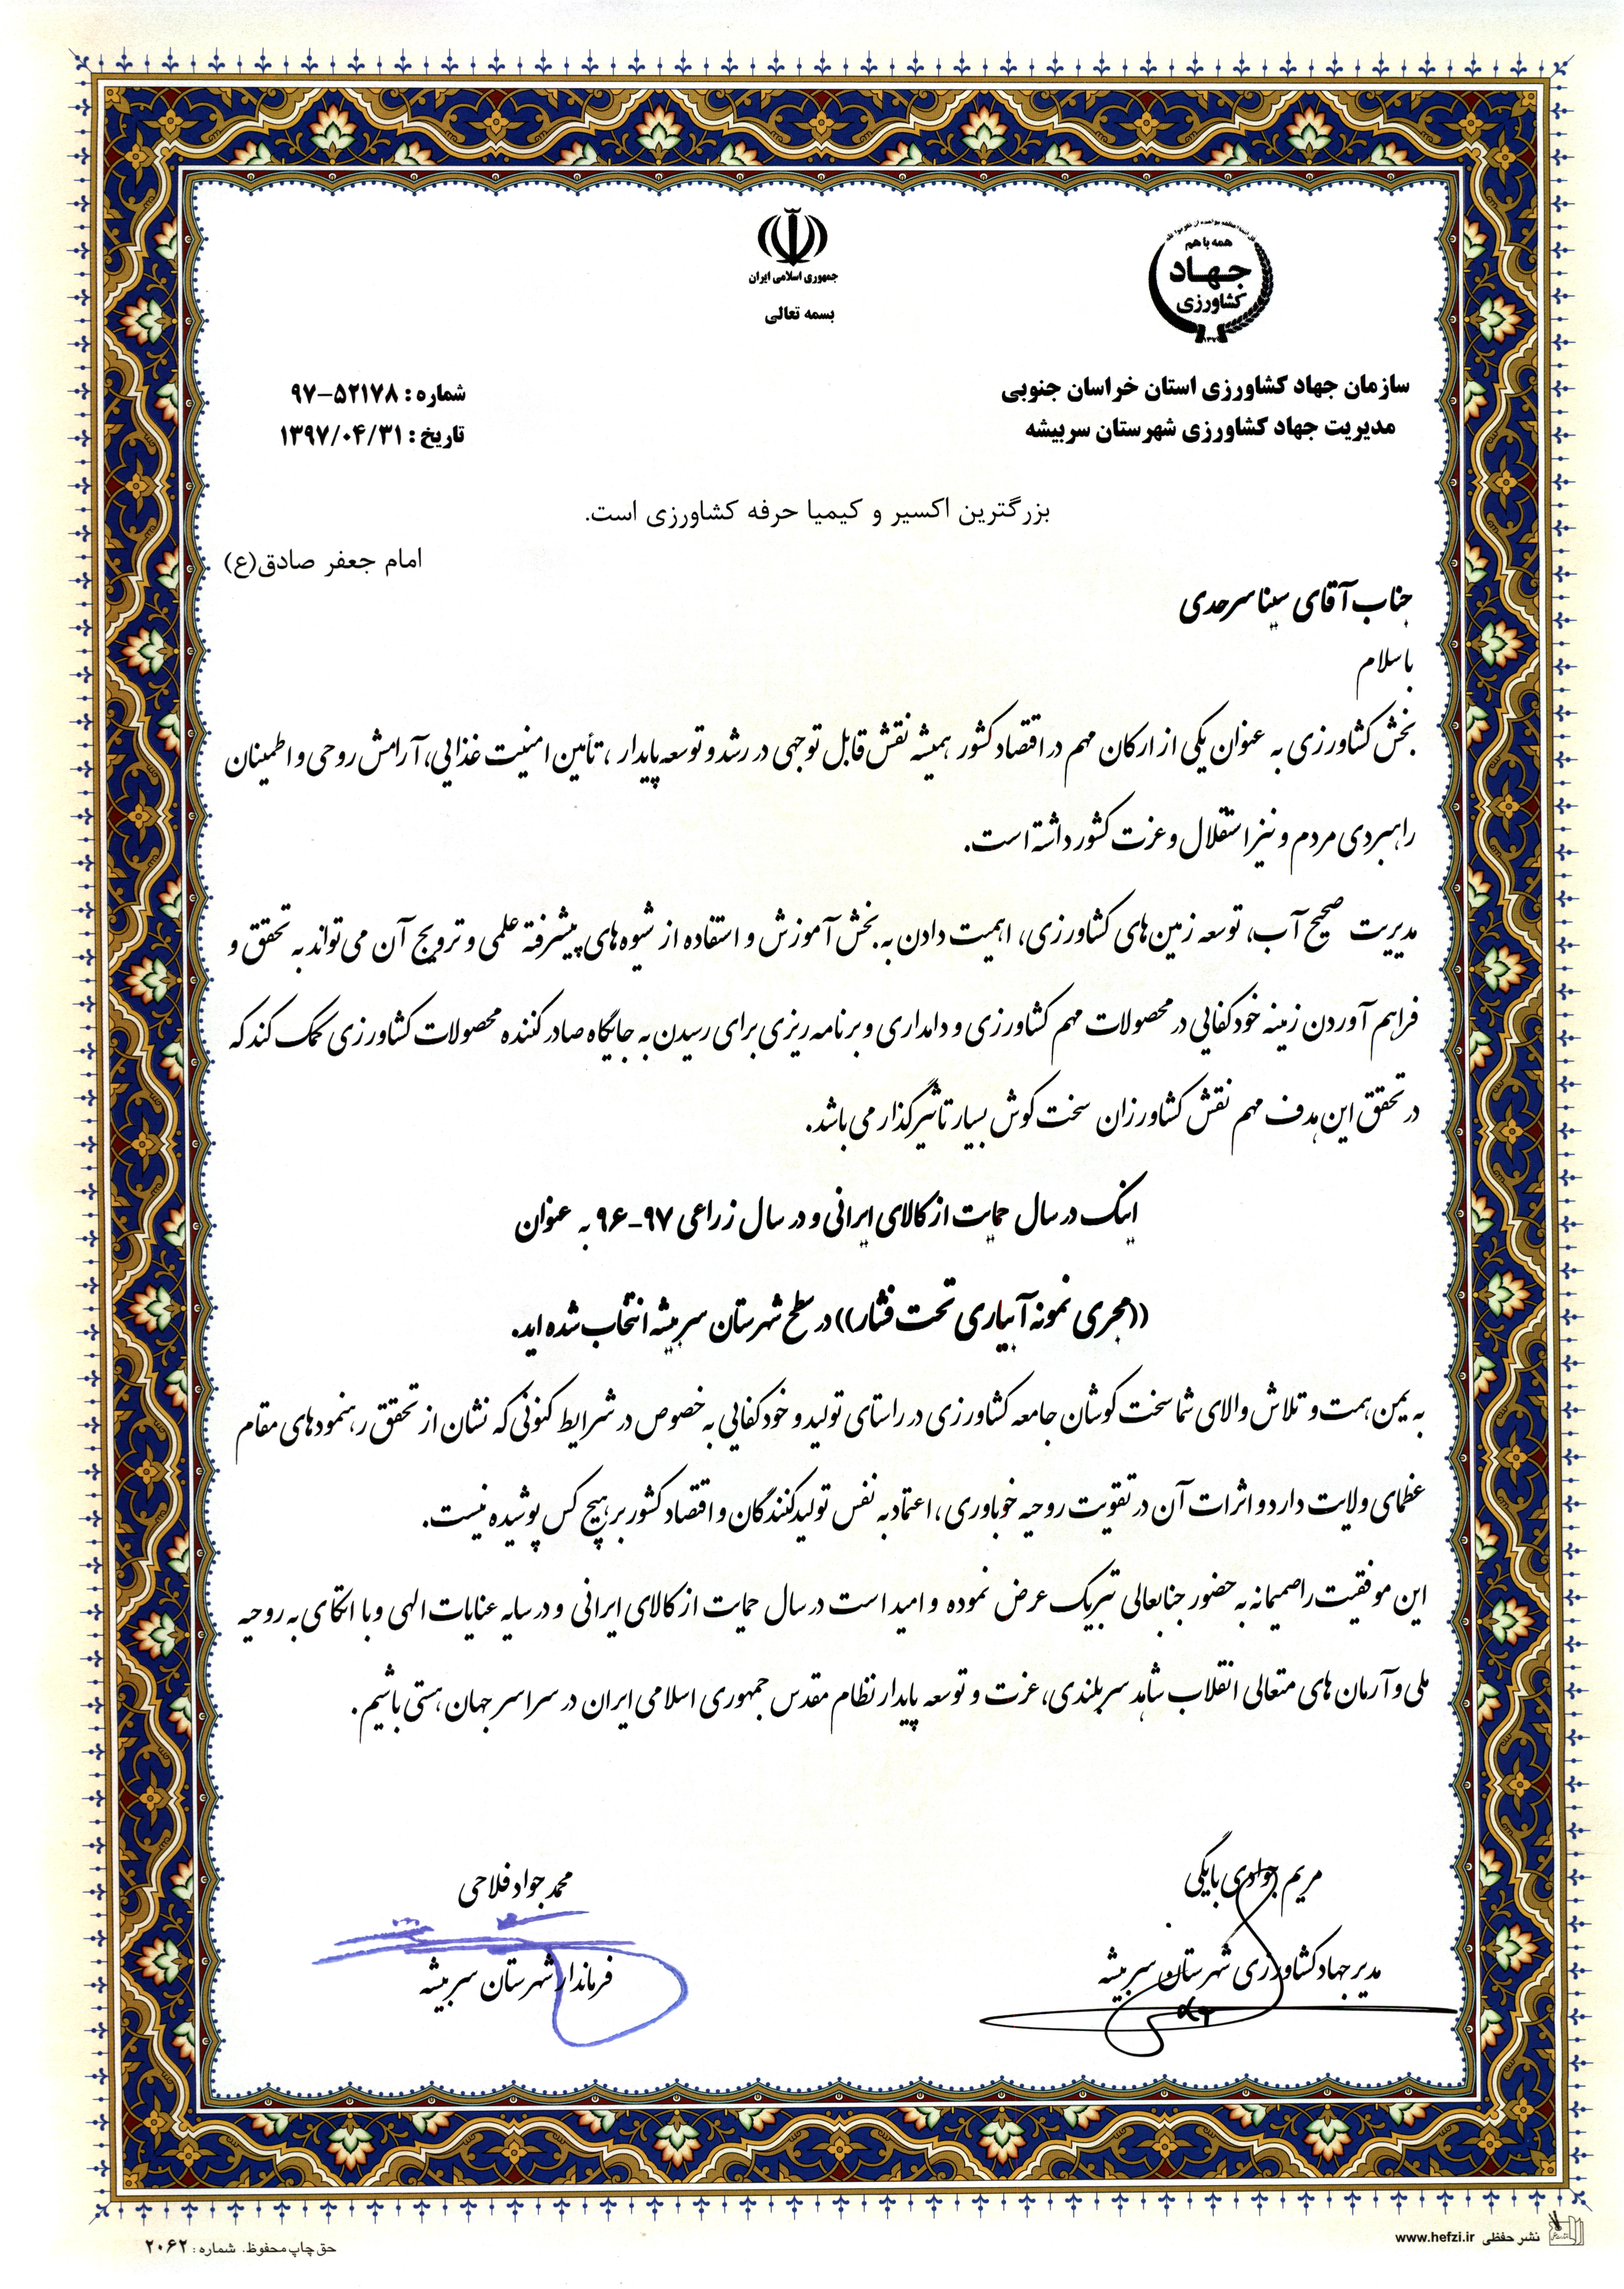 همه با هم
جهاد
کشاورزی
جمهوری اسلامی ایران
بسمه تعالی
سازمان جهاد کشاورزی استان خراسان جنوبی
مدیریت جهاد کشاورزی شهرستان سربیشه
شماره : ۵۲۱۷۸-۹۷
تاریخ : ۱۳۹۷/۰۴/۳۱
بزرگترین اکسیر و کیمیا حرفه کشاورزی است.
امام جعفر صادق(ع)
جناب آقای سینا سرحدی
با سلام
بخش کشاورزی به عنوان یکی از ارکان مهم در اقتصاد کشور همیشه نقش قابل توجهی در رشد و توسعه پایدار ، تأمین امنیت غذایی، آرامش روحی و اطمینان
راهبردی مردم و نیز استقلال و عزت کشور داشته است.
مدیریت صحیح آب، توسعه زمین‌های کشاورزی، اهمیت دادن به بخش آموزش و استفاده از شیوه‌های پیشرفته علمی و ترویج آن می‌تواند به تحقق و
فراهم آوردن زمینه خودکفایی در محصولات مهم کشاورزی و دامداری و برنامه ریزی برای رسیدن به جایگاه صادر کننده محصولات کشاورزی کمک کند که
در تحقق این هدف مهم نقش کشاورزان سخت کوش بسیار تاثیرگذار می باشد.
اینک در سال حمایت از کالای ایرانی و در سال زراعی ۹۷-۹۶ به عنوان
((مجری نمونه آبیاری تحت فشار)) در سطح شهرستان سربیشه انتخاب شده اید.
به یمن همت و تلاش والای شما سخت کوشان جامعه کشاورزی در راستای تولید و خودکفایی به خصوص در شرایط کنونی که نشان از تحقق رهنمودهای مقام
عظمای ولایت دارد و اثرات آن در تقویت روحیه خوباوری ، اعتماد به نفس تولیدکنندگان و اقتصاد کشور بر هیچ کس پوشیده نیست.
این موفقیت را صمیمانه به حضور جنابعالی تبریک عرض نموده و امید است در سال حمایت از کالای ایرانی و در سایه عنایات الهی و با اتکای به روحیه
ملی و آرمان های متعالی انقلاب شاهد سربلندی، عزت و توسعه پایدار نظام مقدس جمهوری اسلامی ایران در سراسر جهان هستی باشیم.
مریم جوادی بایکی
مدیر جهاد کشاورزی شهرستان سربیشه
محمد جواد فلاحی
فرماندار شهرستان سربیشه
نشر حفظی www.hefzi.ir
حق چاپ محفوظ. شماره : ۲۰۶۲